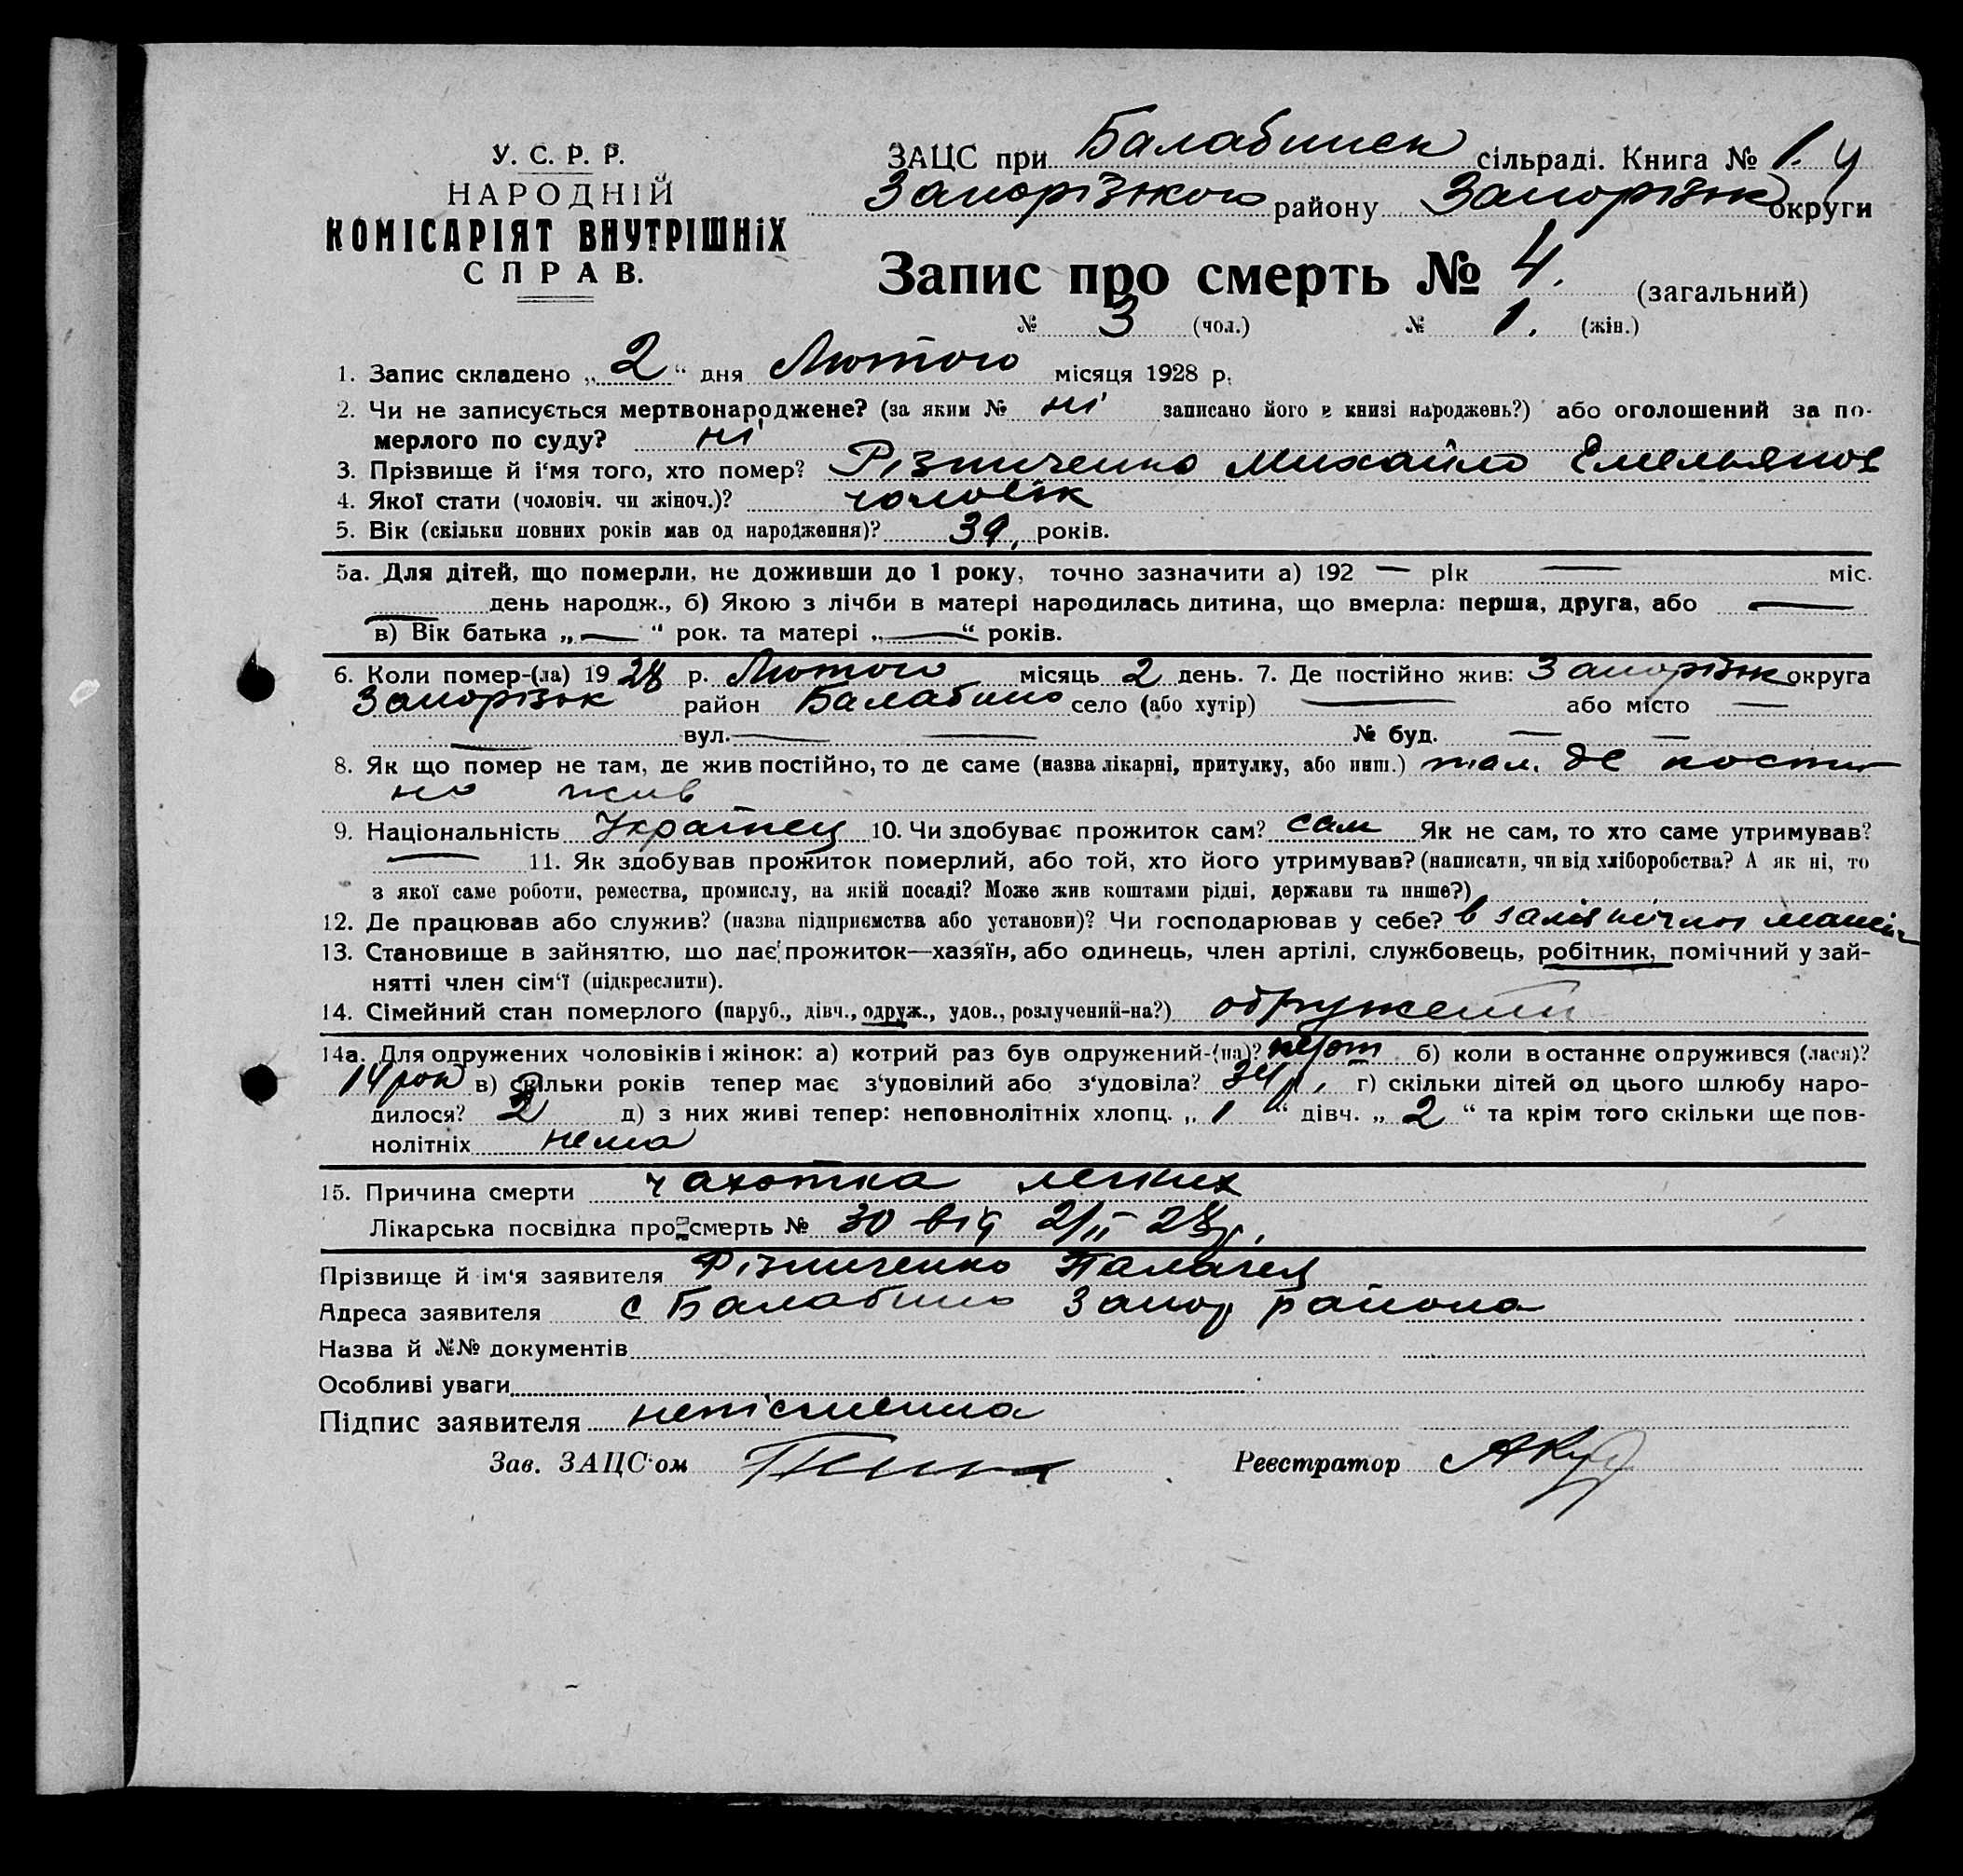 У. С. Р. Р.
НАРОДНІЙ
КОМІСАРІЯТ ВНУТРІШНІХ
СПРАВ.
ЗАЦС при Балабинск сільраді. Книга № 1. ч
Запоріжкого району Запоріжж округи
Запис про смерть № 4. (загальний)
№ 3 (чол.) № 1. (жін.)
1. Запис складено „ 2 “ дня Лютого місяця 1928 р.
2. Чи не записується мертвонароджене? (за яким № ні записано його в книзі народжень?) або оголошений за по-
мерлого по суду? ні
3. Прізвище й і'мя того, хто помер? Різниченко Михайло Емельянов
4. Якої стати (чоловіч. чи жіноч.)? чоловік
5. Вік (скільки повних років мав од народження)? 39, років.
5а. Для дітей, що померли, не доживши до 1 року, точно зазначити а) 192 — рік — міс.
день народж., б) Якою з лічби в матері народилась дитина, що вмерла: перша, друга, або —
в) Вік батька „ — “ рок. та матері „ — “ років.
6. Коли помер-(ла) 19 28 р. Лютого місяць 2 день. 7. Де постійно жив: Запоріжж округа
Запоріжж район Балабино село (або хутір) — або місто —
— вул. — — № буд. — —
8. Як що помер не там, де жив постійно, то де саме (назва лікарні, притулку, або инш.) там, де постій
но жив
9. Національність Українец 10. Чи здобуває прожиток сам? сам Як не сам, то хто саме утримував?
— 11. Як здобував прожиток померлий, або той, хто його утримував? (написати, чи від хліборобства? А як ні, то
з якої саме роботи, ремества, промислу, на якій посаді? Може жив коштами рідні, держави та инше?)
12. Де працював або служив? (назва підприємства або установи)? Чи господарював у себе? в
13. Становище в зайняттю, що дає прожиток—хазяїн, або одинець, член артілі, службовець, робітник, помічний у зай-
нятті член сім'ї (підкреслити).
14. Сімейний стан померлого (паруб., дівч., одруж., удов., розлучений-на?) обружений
14а. Для одружених чоловіків і жінок: а) котрий раз був одружений-(на)? б) коли в останнє одружився (лася)?
14 рок в) скільки років тепер має з'удовілий або з'удовіла? 34 р. г) скільки дітей од цього шлюбу наро-
дилося? д) з них живі тепер: неповнолітніх хлопц. „ 1 “ дівч. „ 2 “ та крім того скільки ще пов-
нолітніх нема
15. Причина смерти чахотка легких
Лікарська посвідка про смерть № 30 від 2/II 28р.
Прізвище й ім'я заявителя Різниченко Палагея
Адреса заявителя с Балабино Запор района
Назва й №№ документів
Особливі уваги
Підпис заявителя непісменна
Зав. ЗАЦС'ом Реєстратор